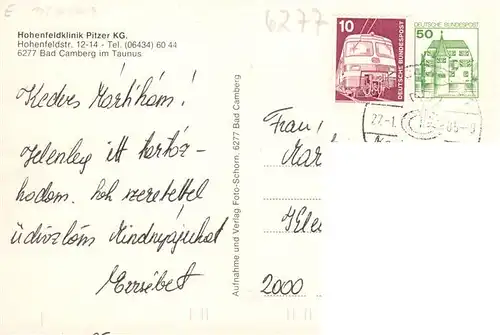 6277
Hohenfeldklinik Pitzer KG.
Hohenfeldstr. 12-14 - Tel. (06434) 60 44
6277 Bad Camberg im Taunus
10
DEUTSCHE BUNDESPOST
DEUTSCHE BUNDESPOST
50
Kedves Márikám!
Jelenleg itt tartóz-
kodom. Sok szeretettel
üdvözlöm Mindnyájukat
Erzsébet
Aufnahme und Verlag Foto-Schorn, 6277 Bad Camberg
Frau
Mar
2000